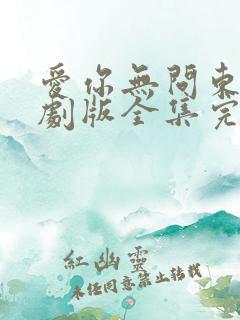 愛你無問東
劇版全集完
紅幽靈
未經同意禁止轉載